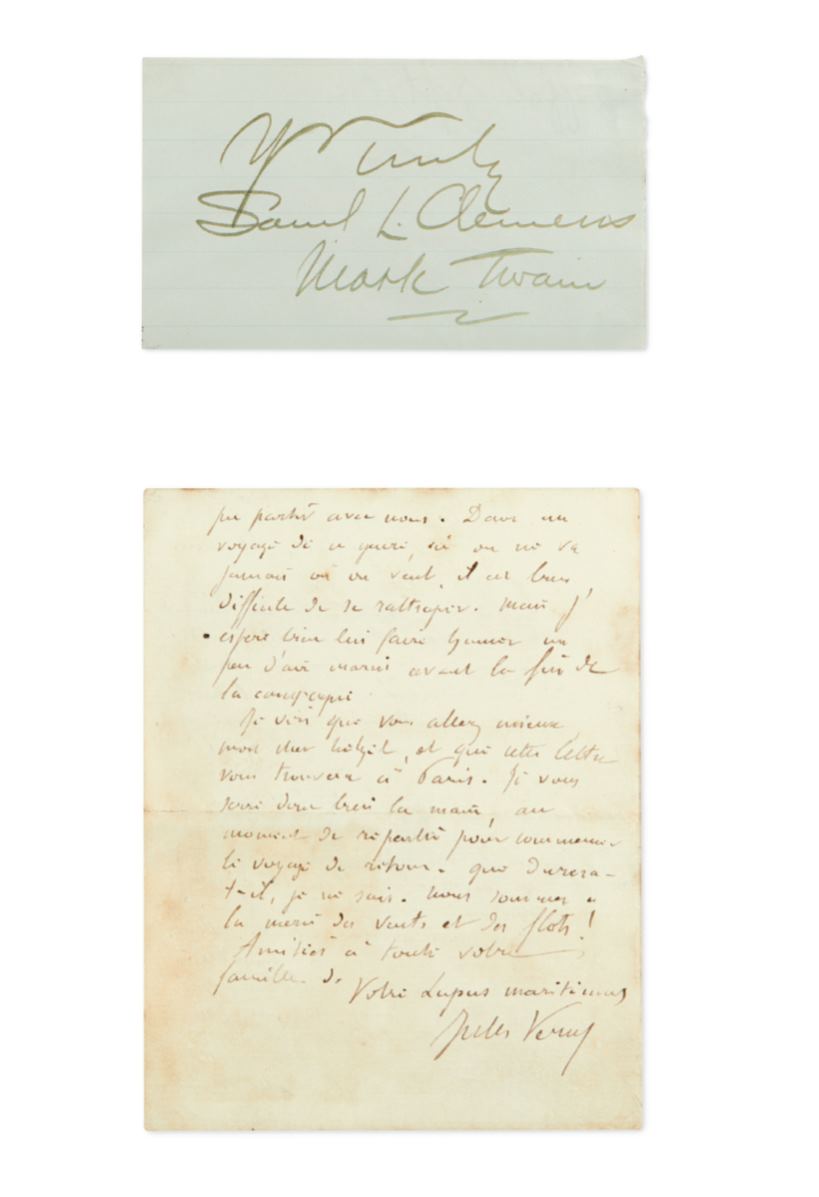 Yrs Truly
Saml L. Clemens
Mark Twain
pu partir avec nous. Dans un
voyage de ce genre, où on ne va
jamais où on veut, il est bien
difficile de se rattraper. Mais j'
espère bien lui faire humer un
peu d'air marin avant la fin de
la campagne.
Je vois que vous allez mieux,
mon cher Hetzel, et que cette lettre
vous trouvera à Paris. Je vous
serre donc bien la main, au
moment de repartir pour commencer
le voyage de retour. que durera-
t-il, je ne sais. Nous sommes à
la merci des vents et des flots!
Amitiés à toute votre
famille. de
Votre Lupus maritimus
Jules Verne